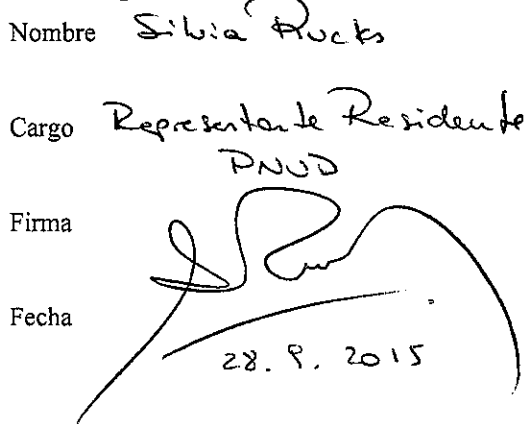 Nombre Silvia Rucks
Cargo Representante Residente
PNUD
Firma
Fecha
28. 9. 2015